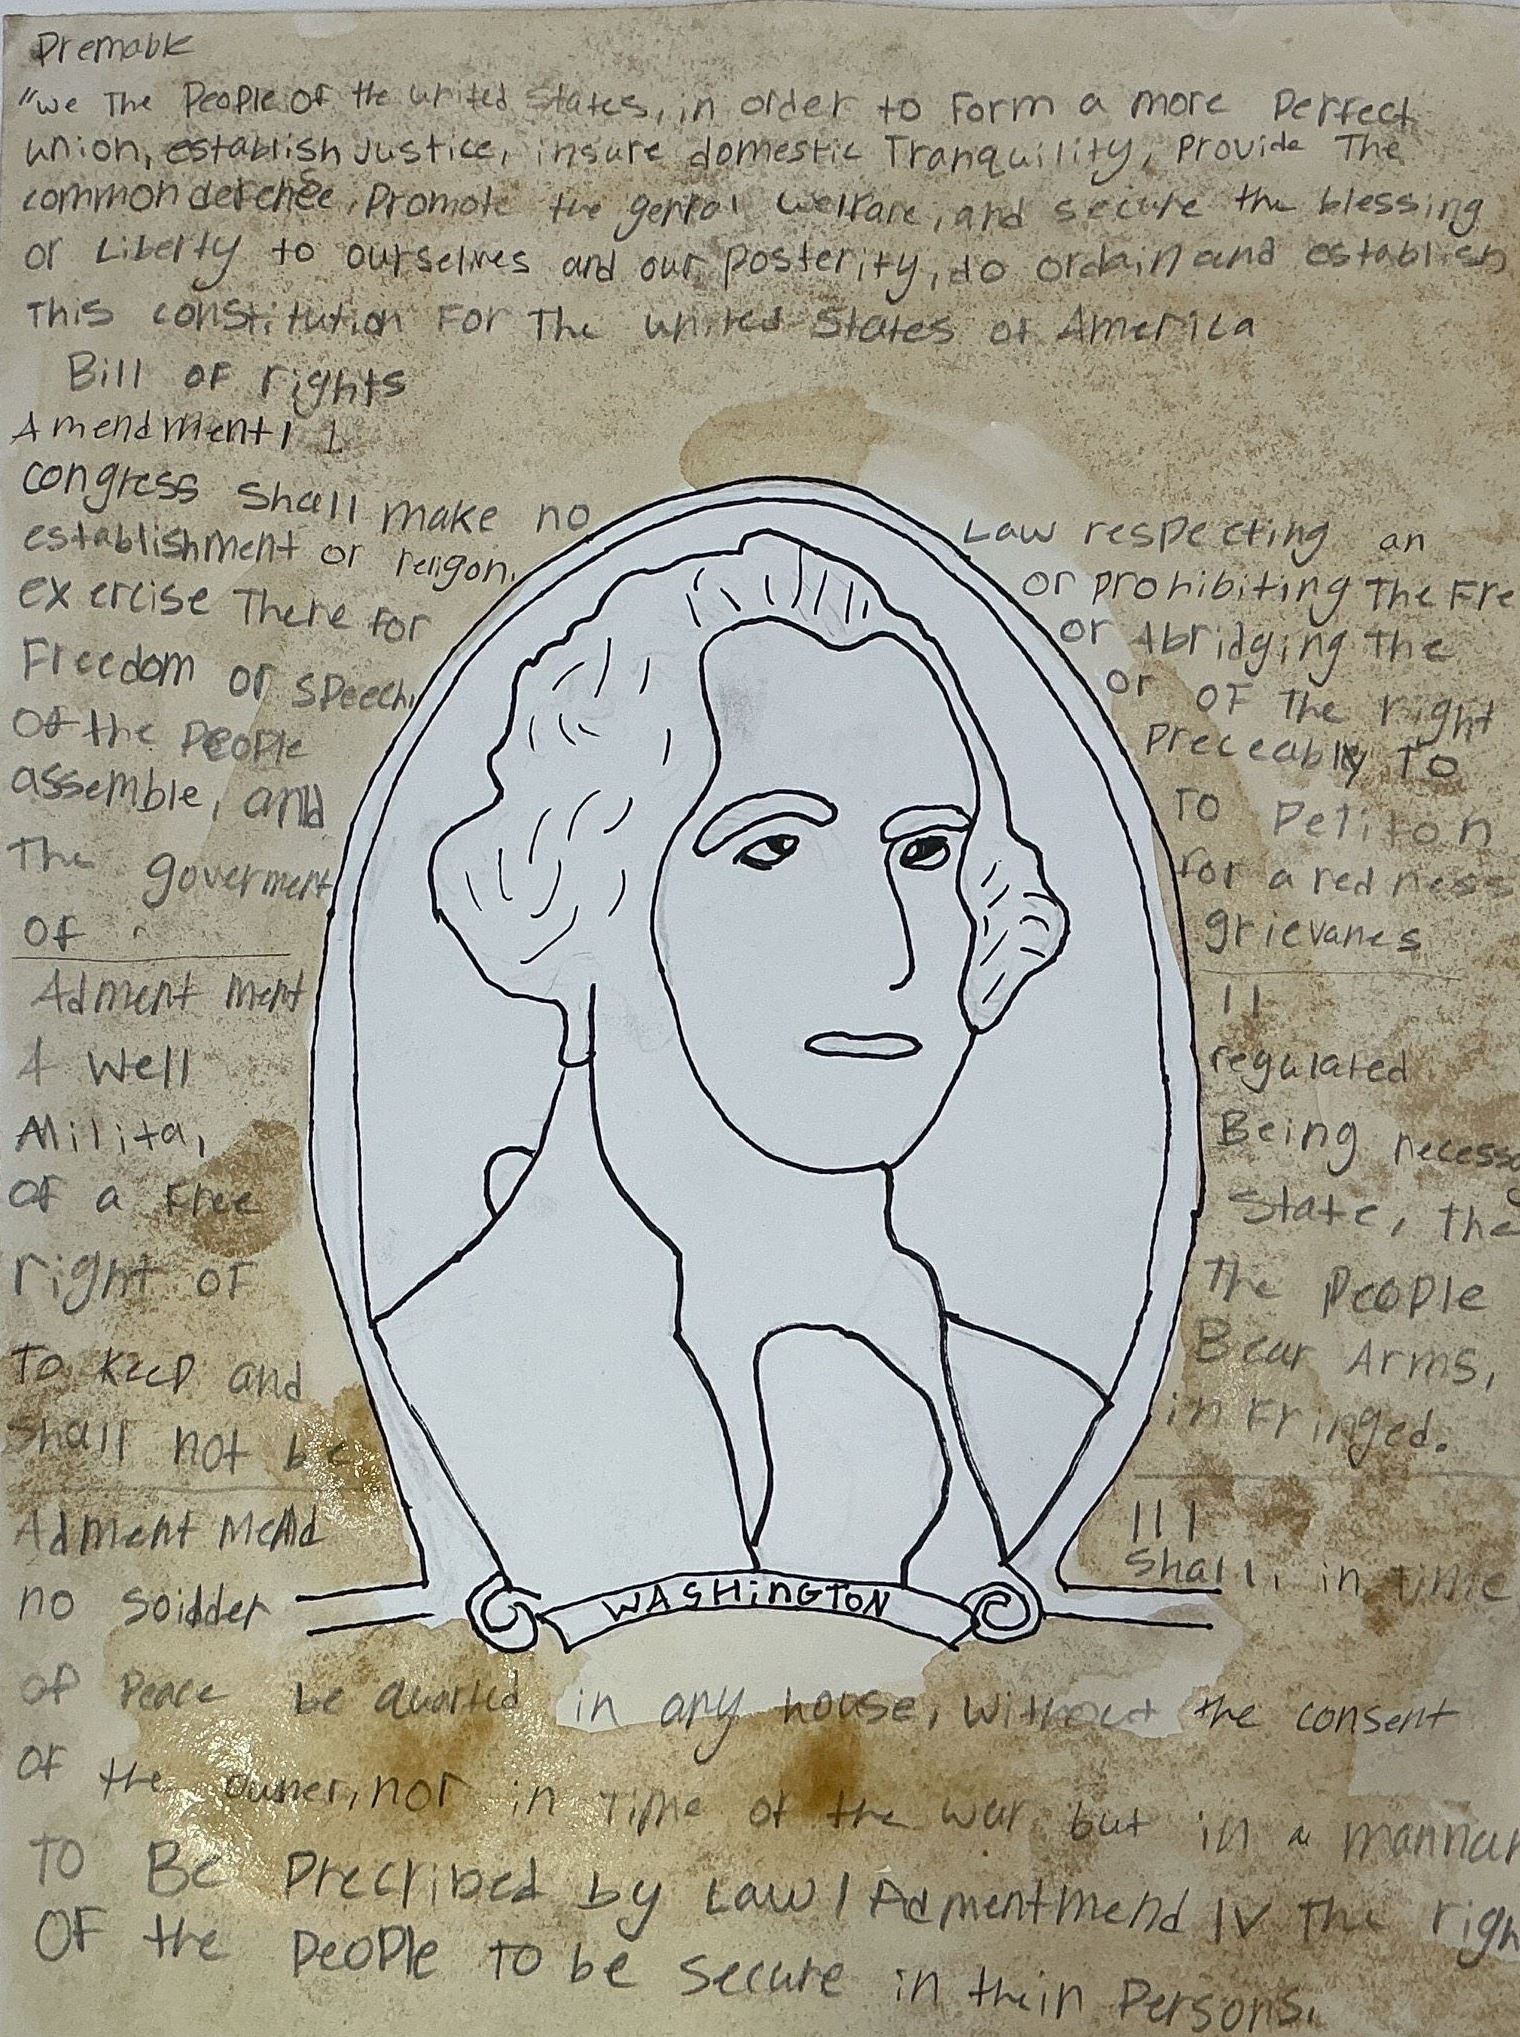 Premable
"we The People of the united States, in order to Form a more Perfect
union, establish Justice, insure domestic Tranquility, Provide The
common defence, Promote the genral welfare, and secure the blessing
or Liberty to ourselves and our Posterity, do ordain and establish
This constitution For The united States of America
Bill of rights
Amendment 1
congress shall make no Law respecting an
establishment or religon, or prohibiting The Fre
exercise There For or Abridging The
Freedom or speech, or of The right
of the People Preceably To
assemble, and To Peliton
The goverment for a redness
of grievanes
Adment ment 11
A well regulated
Milita, Being necessa
of a Free State, the
right of The People
To Keep and Bear Arms,
shall not be in Fringed.
Adment Mend 111
no soidder shall, in time
WASHiNGTON
of Peace be quarted in any house, without the consent
of the owner, nor in Time of the war but in a mannur
To Be Precribed by Law / Admentmend IV The righ
OF the People To be secure in thein Persons.